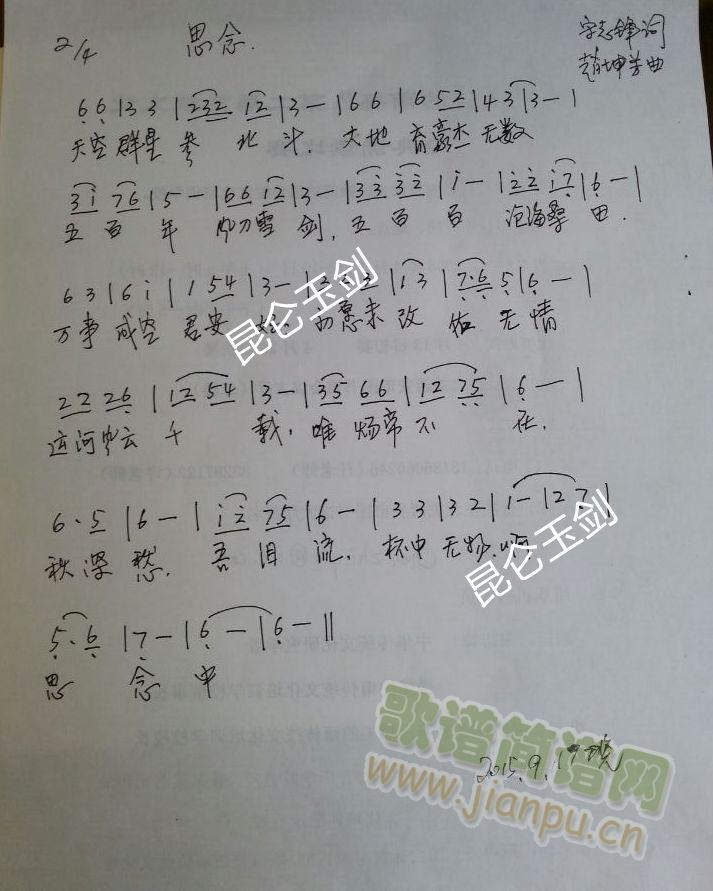 2/4 思念.
李志锋词
赵坤芳曲
6 6 | 3 3 | 232 12 | 3 — | 6 6 | 6 52 | 4 3 | 3 — |
天空 群星 参 北 斗. 大地 育豪杰 无数
3i 76 | 5 — | 66 12 | 3 — | 33 32 | i — | 22 i7 | 6 — |
五 百 年 雪 剑, 五 百 百 沧海桑 田.
6 3 | 6 i | 1 54 | 3 —
万事 成空 君安 初愿未改 无 情
22 26 | 12 54 | 3 — | 35 66 | 12 75 | 6 — |
运河 云 千 载, 唯 炀帝 不 在.
6 · 5 | 6 — | i2 75 | 6 — | 3 3 | 3 2 | i — | 12 7 |
秋深 愁. 吾 泪 流. 杯中 无物.啊
5 · 6 | 7 — | 6 — | 6 — ||
思 念 中
2015.9.17晚
昆仑玉剑
昆仑玉剑
歌谱简谱网
www.jianpu.cn